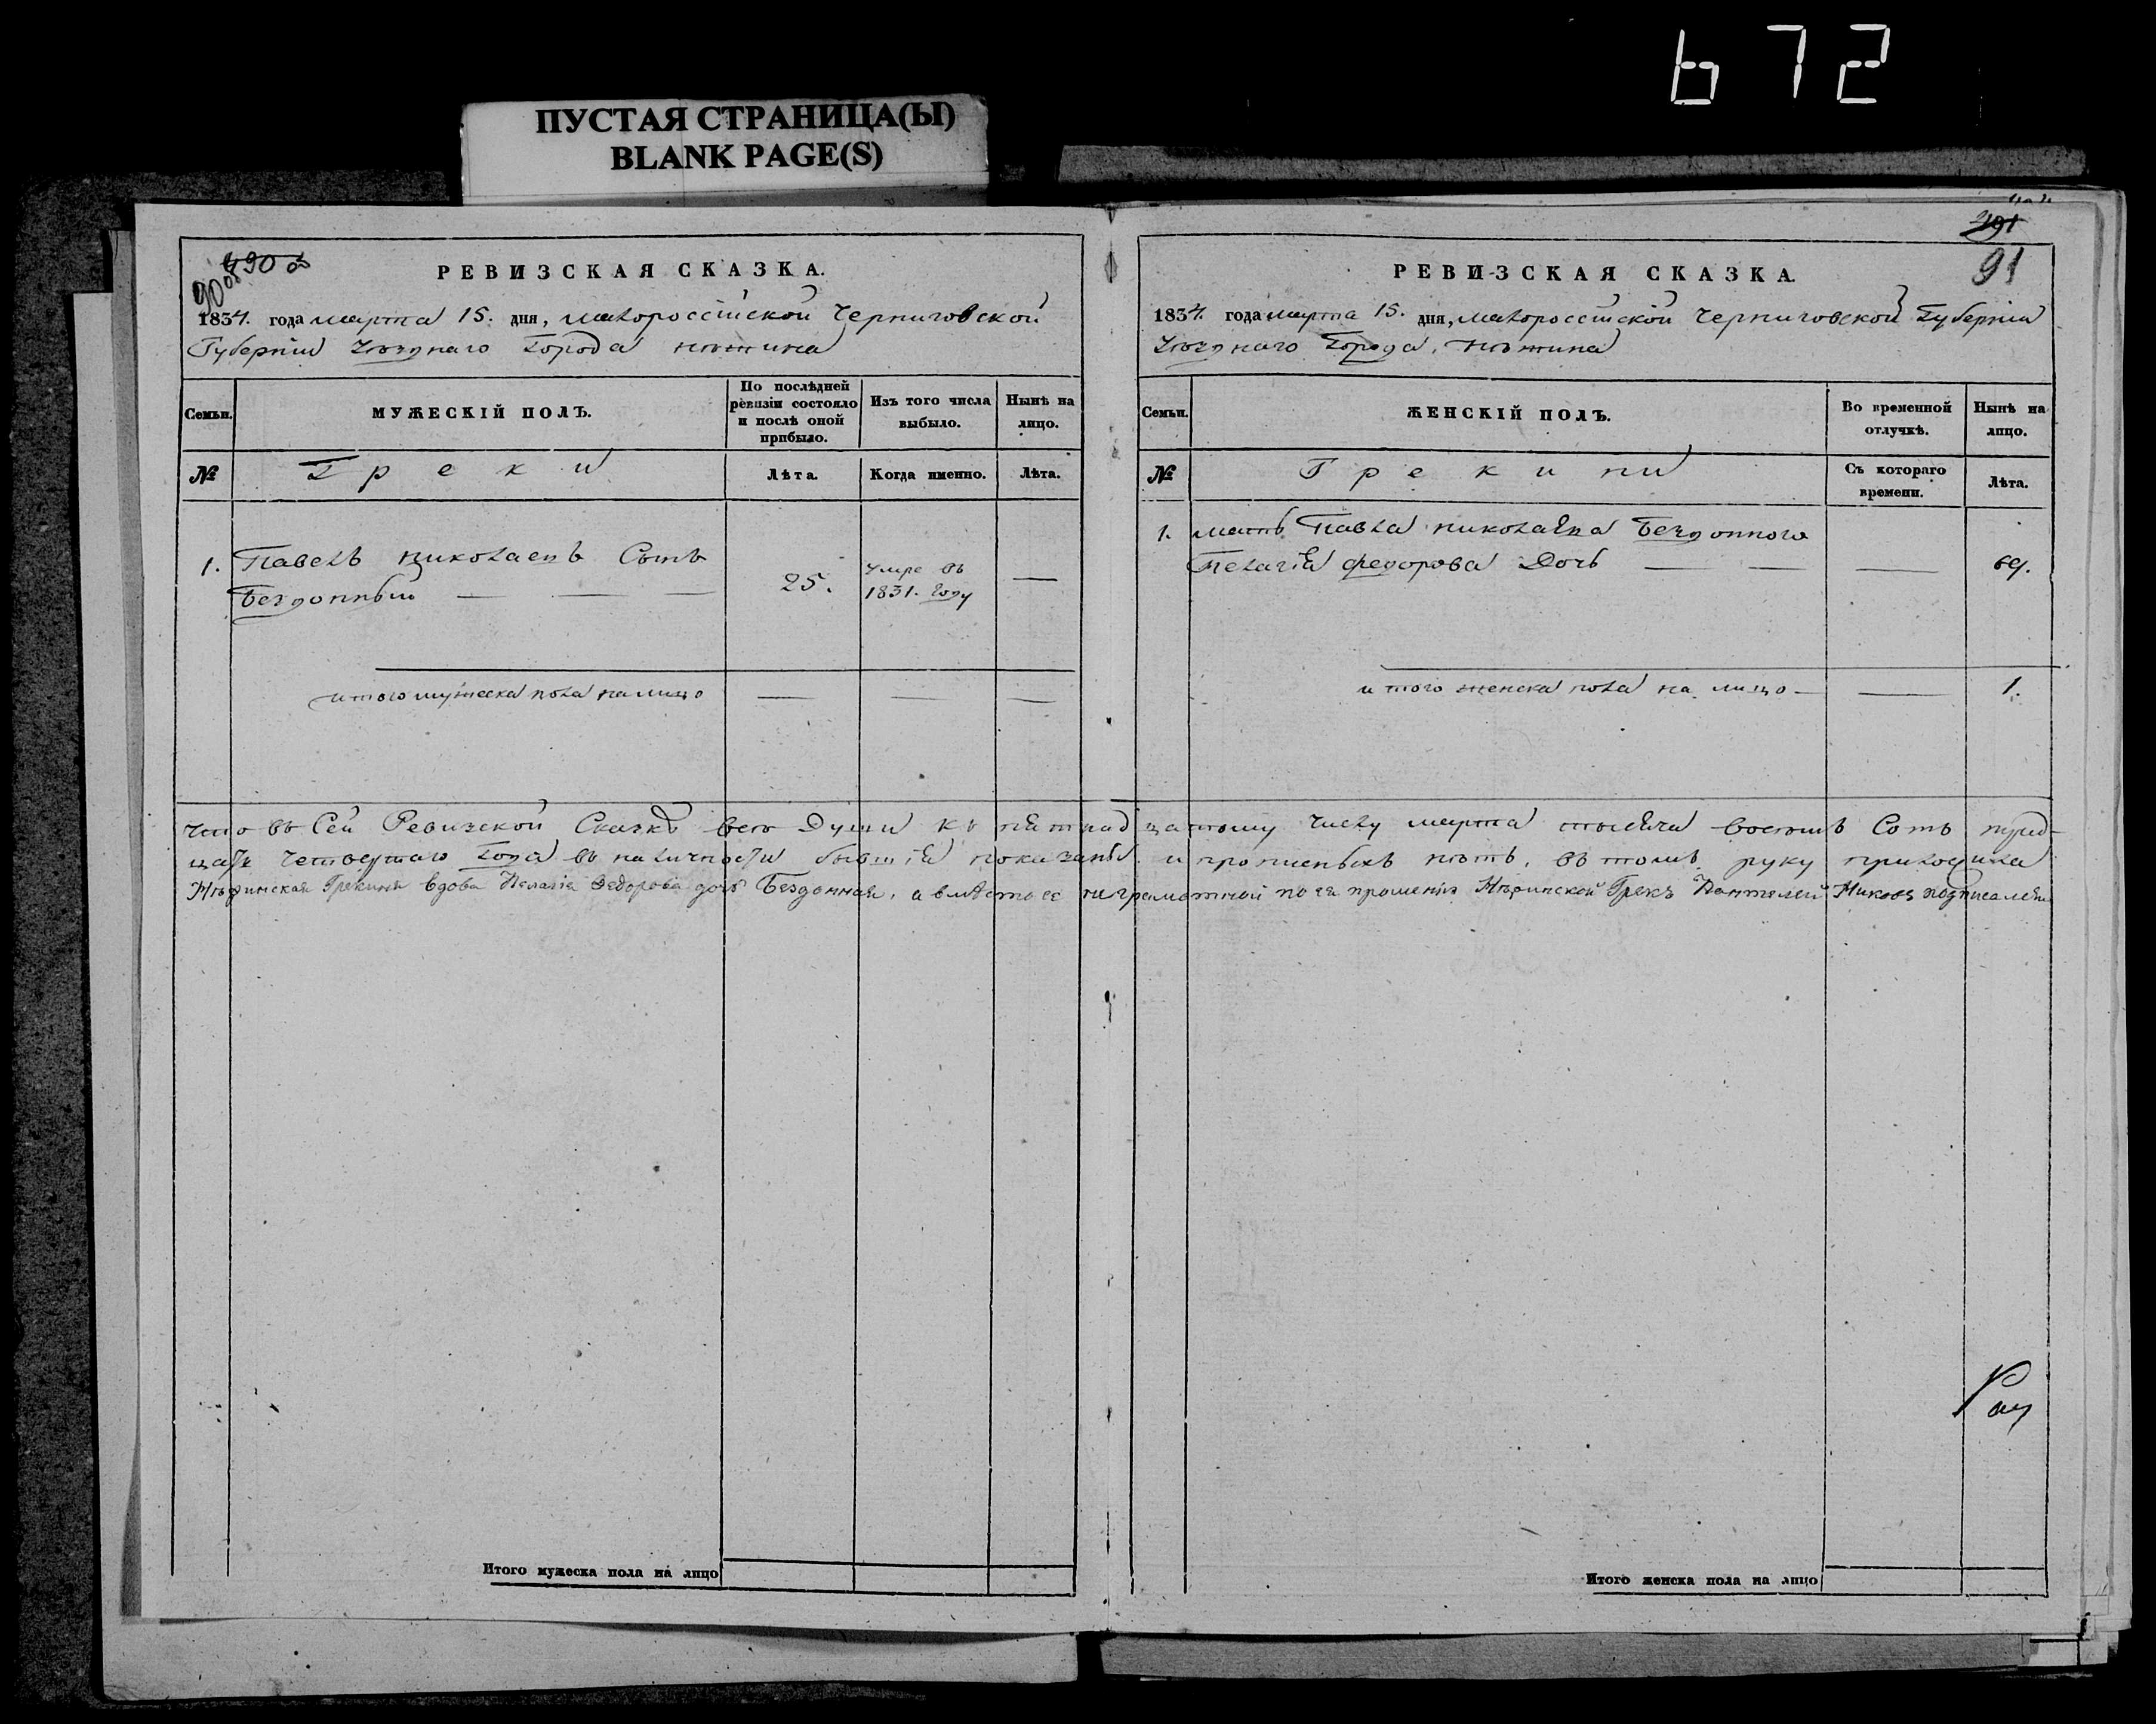 672
ПУСТАЯ СТРАНИЦА(Ы)
BLANK PAGE(S)
490 об
90 об
РЕВИЗСКАЯ СКАЗКА.
1834. года марта 15. дня, малороссійской Черниговской
Губерніи уѣзднаго Города нѣжина
Семьи.
МУЖЕСКІЙ ПОЛЪ.
По послѣдней ревизіи состояло и послѣ оной прибыло.
Изъ того числа выбыло.
Нынѣ на лицо.
№
Греки
Лѣта.
Когда именно.
Лѣта.
1. Павелъ николаевъ Сынъ
Бездонный — — — 25. умре въ 1831. году —
итого мужеска пола налицо — — —
491
91
РЕВИЗСКАЯ СКАЗКА.
1834. года марта 15. дня, малороссійской Черниговской Губерніи
уѣзднаго Города, нѣжина
Семьи.
ЖЕНСКІЙ ПОЛЪ.
Во временной отлучкѣ.
Нынѣ на лицо.
№
Грекини
Съ котораго времени.
Лѣта.
1. мать Павла николаева Бездонного
Пелагія федорова Дочь — — — 69.
и того женска пола на лицо — — 1.
Что въ Сей Ревизской Сказкѣ всѣ Души къ пятнадцатому числу марта тысяча восемь Сотъ трид-
цать четвертаго Года въ наличности бывшія показаны и прописныхъ нѣтъ, въ томъ руку приложила
Нѣжинская Грекиня вдова Пелагія Федорова дочь Бездонная, а вмѣсто ее неграмотной по ея прошенію Нѣжинской Грекъ Пантелей подписался
Итого мужеска пола на лицо
Итого женска пола на лицо